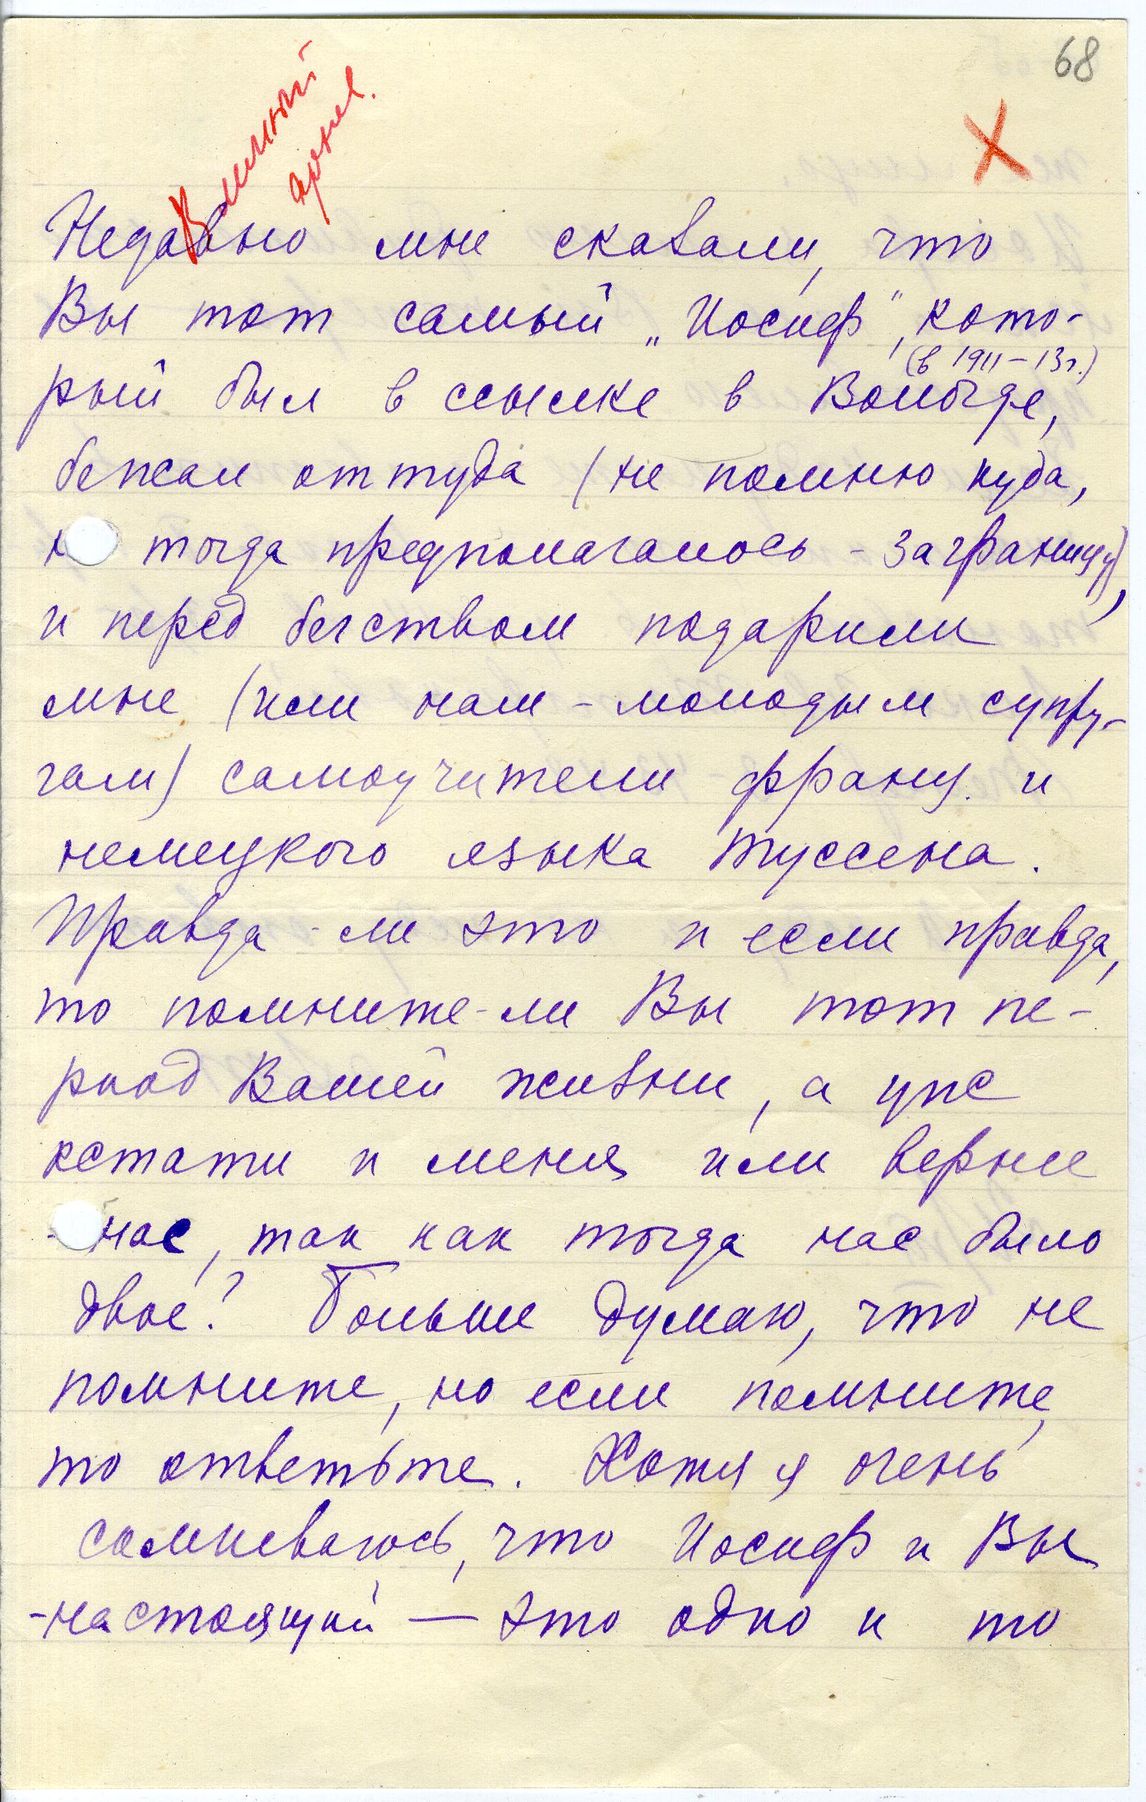 68
Личный
архив.
Х
Недавно мне сказали, что
Вы тот самый „Иосиф", кото-
(в 1911–13г.)
рый был в ссылке в Вологде,
бежал оттуда (не помню куда,
но тогда предполагалось - заграницу),
и перед бегством подарили
мне (или нам - молодым супру-
гам) самоучители франц. и
немецкого языка Туссена.
Правда-ли это и если правда,
то помните-ли Вы тот пе-
риод Вашей жизни, а уже
кстати и меня или вернее
- нас, так как тогда нас было
двое? Больше думаю, что не
помните, но если помните,
то ответьте. Хотя я очень
сомневаюсь, что Иосиф и Вы
-настоящий — это одно и то